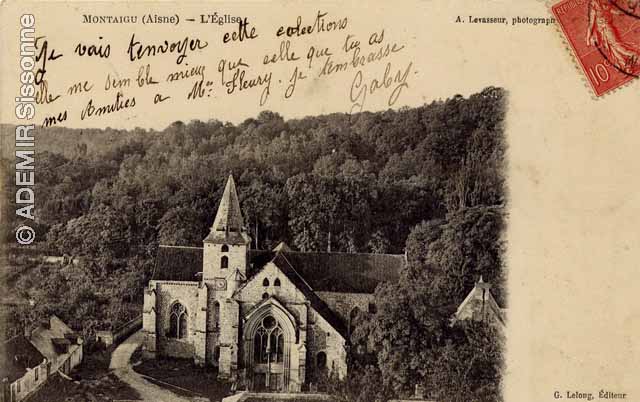 MONTAIGU (Aisne) — L'Église
A. Levasseur, photograph
Je vais t'envoyer cette colections
elle me semble mieux que celle que tu as
mes Amities a Mr Fleury. je t'embrasse
Gaby.
10
© ADEMIR Sissonne
G. Lelong, Éditeur